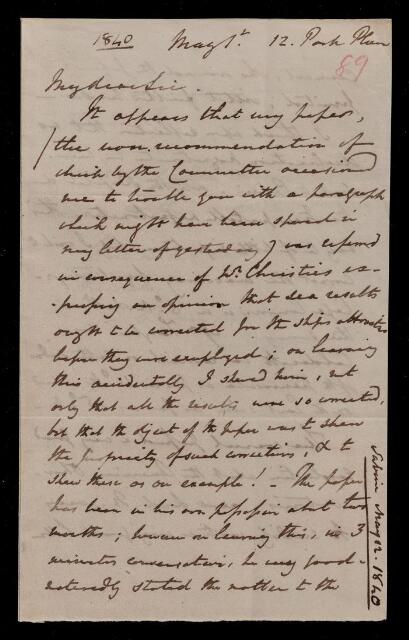 1840 May 1st. 12. Park Place
89
My dear Sir.
It appears that my paper,
(the non-recommendation of
which by the Committee occasioned
me to trouble you with a paragraph
which might have been spared in
my letter of yesterday) was referred
in consequence of Mr. Christie's ex-
-pressing an opinion that sea results
ought to be corrected for the ships attraction
before they were employed; on learning
this accidentally I shewed him, not
only that all the results were so corrected,
but that the object of the paper was to shew
the necessity of such corrections, & to
shew these as an example! - The paper
has been in his own possession about two
months; however on learning this, in 3
minutes conversation, he very good-
naturedly stated the matter to the
Sabine May 1840